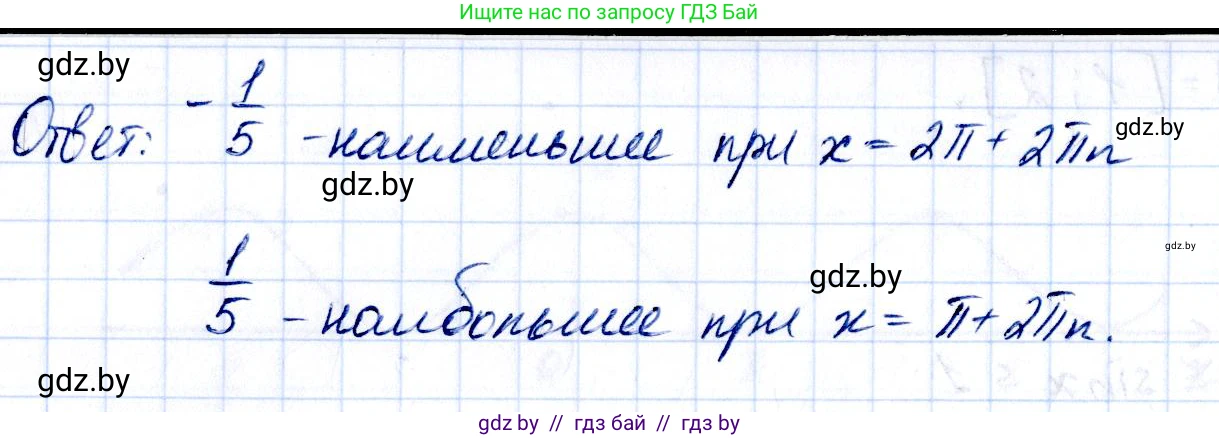 Ищите нас по запросу ГДЗ Бай
gdz.by
Ответ: -1/5 - наименьшее при x = 2π + 2πn
gdz.by
gdz.by
gdz.by
1/5 - наибольшее при x = π + 2πn.
gdz.by
gdz.by
gdz.by // гдз бай // гдз by